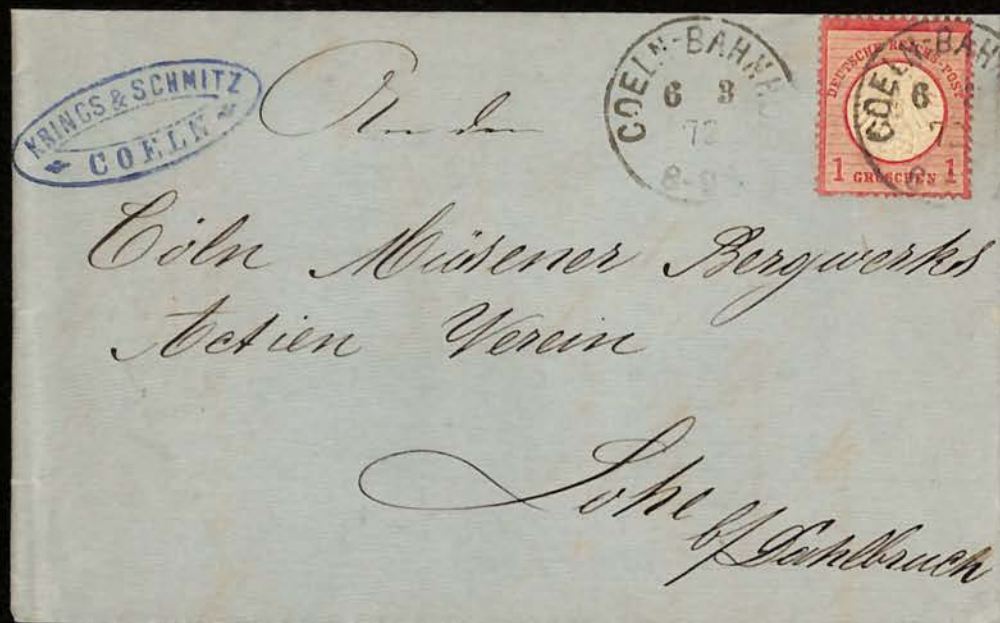 KRINGS & SCHMITZ
COELN
COELN-BAHNH
6 3
72
8-9
DEUTSCHE REICHS-POST
1 GROSCHEN 1
COELN-BAH
6
An den
Cöln Müsener Bergwerks
Actien Verein
Lohe
b/Dahlbruch